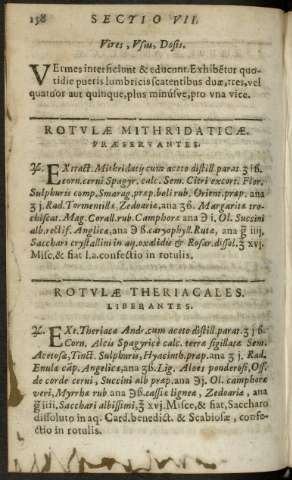 158 SECTIO VII.
Vires, Usus, Dosis.
VErmes interficiunt & educunt. Exhibētur quo-
tidie pueris lumbricis scatentibus duæ, tres, vel
quatuor aut quinque, plus minúsve, pro una vice.
ROTVLÆ MITHRIDATICÆ.
PRÆSERVANTES.
℞. EXtract. Mithridatij cum aceto distill. parat. ʒ iß.
corn. cerui Spagyr. calc. Sem. Citri excort. Flor.
Sulphuris comp. Smarag. præp. boli rub. Orient. præp. ana
ʒ j. Rad. Tormentillæ, Zedoariæ, ana ʒß. Margaritæ tro-
chiscat. Mag. Corall. rub. Camphoræ ana ℈ i, Ol. Succini
alb. rectif. Anglicæ, ana ℈ ß. caryophyll. Rutæ, ana g̃ iiij.
Sacchari crystallini in aq. oxalidis & Rosar. dissol. ℥ xvj.
Misc. & fiat l.a. confectio in rotulis.
ROTVLÆ THERIACALES.
LIBERANTES.
℞. EXt. Theriacæ And. cum aceto distill. parat. ʒ j ß.
Corn. Alcis Spagyricè calc. terræ sigillatæ Sem.
Acetosæ, Tinct. Sulphuris, Hyacinth. præp. ana ʒ j. Rad.
Enulæ cāp. Angelicæ, ana ʒß. Lig. Aloes ponderosi, Oss.
de corde cerui, Succini alb præp. ana ℈j. Ol. camphoræ
veri, Myrrhæ rub ana ℈ß. cassiæ ligneæ, Zedoariæ, ana
g̃ iiij, Sacchari albissimi, ℥ xvj. Misce, & fiat, Saccharo
dissoluto in aq. Card. benedict. & Scabiosæ, confe-
ctio in rotulis.